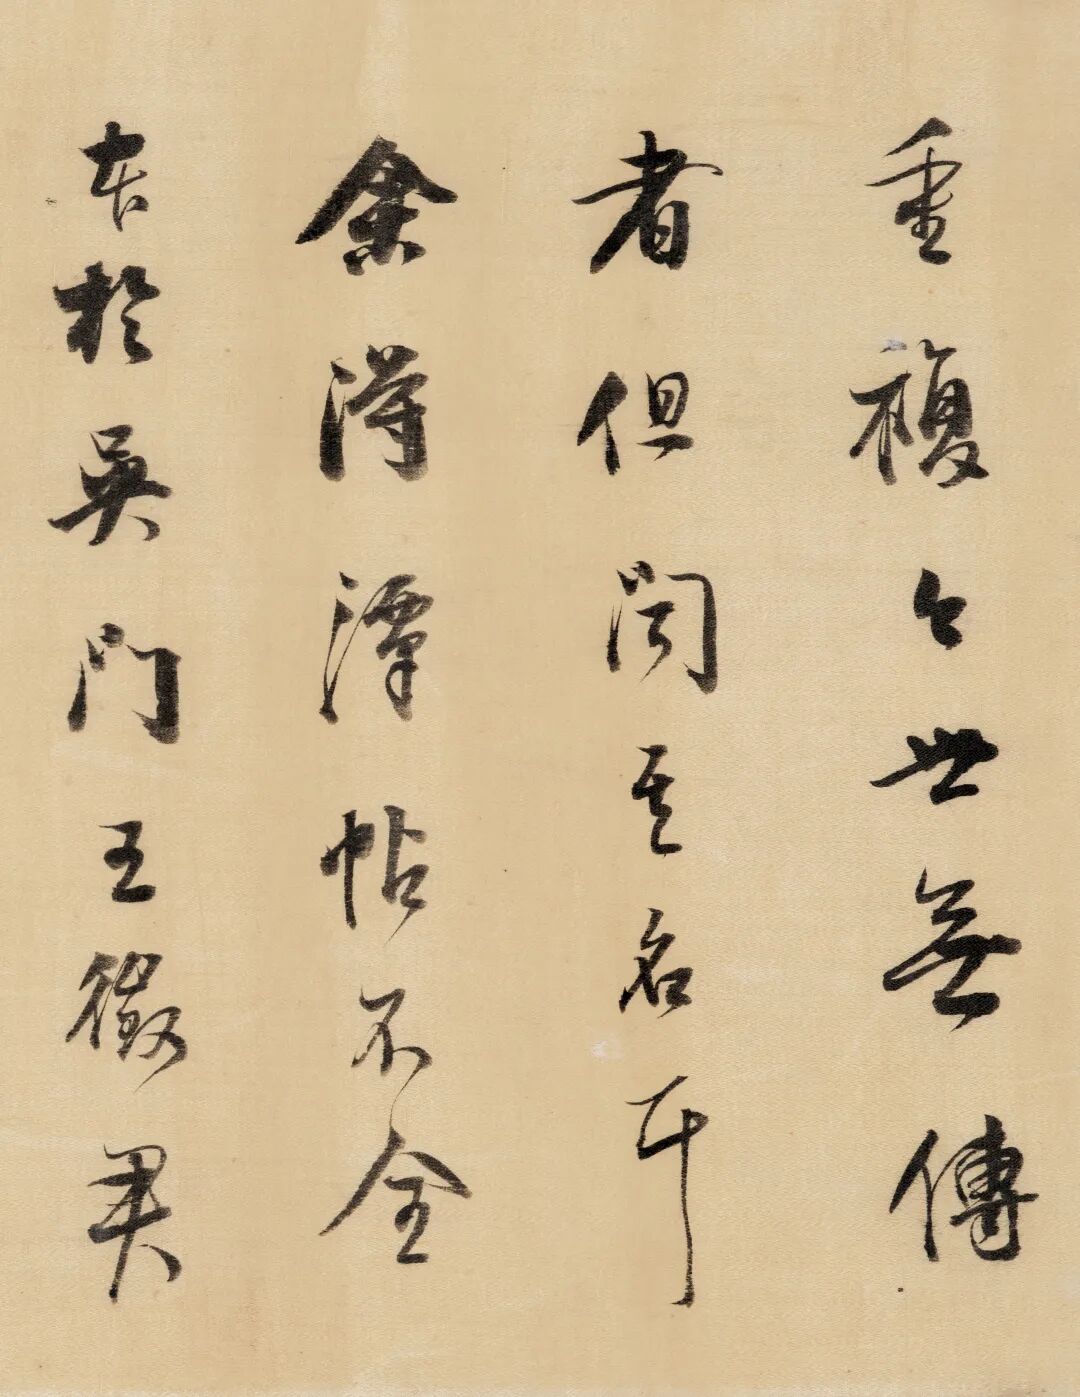 重複今世無傳
者但聞其名耳
余得潭帖不全
本於吳門王徵君